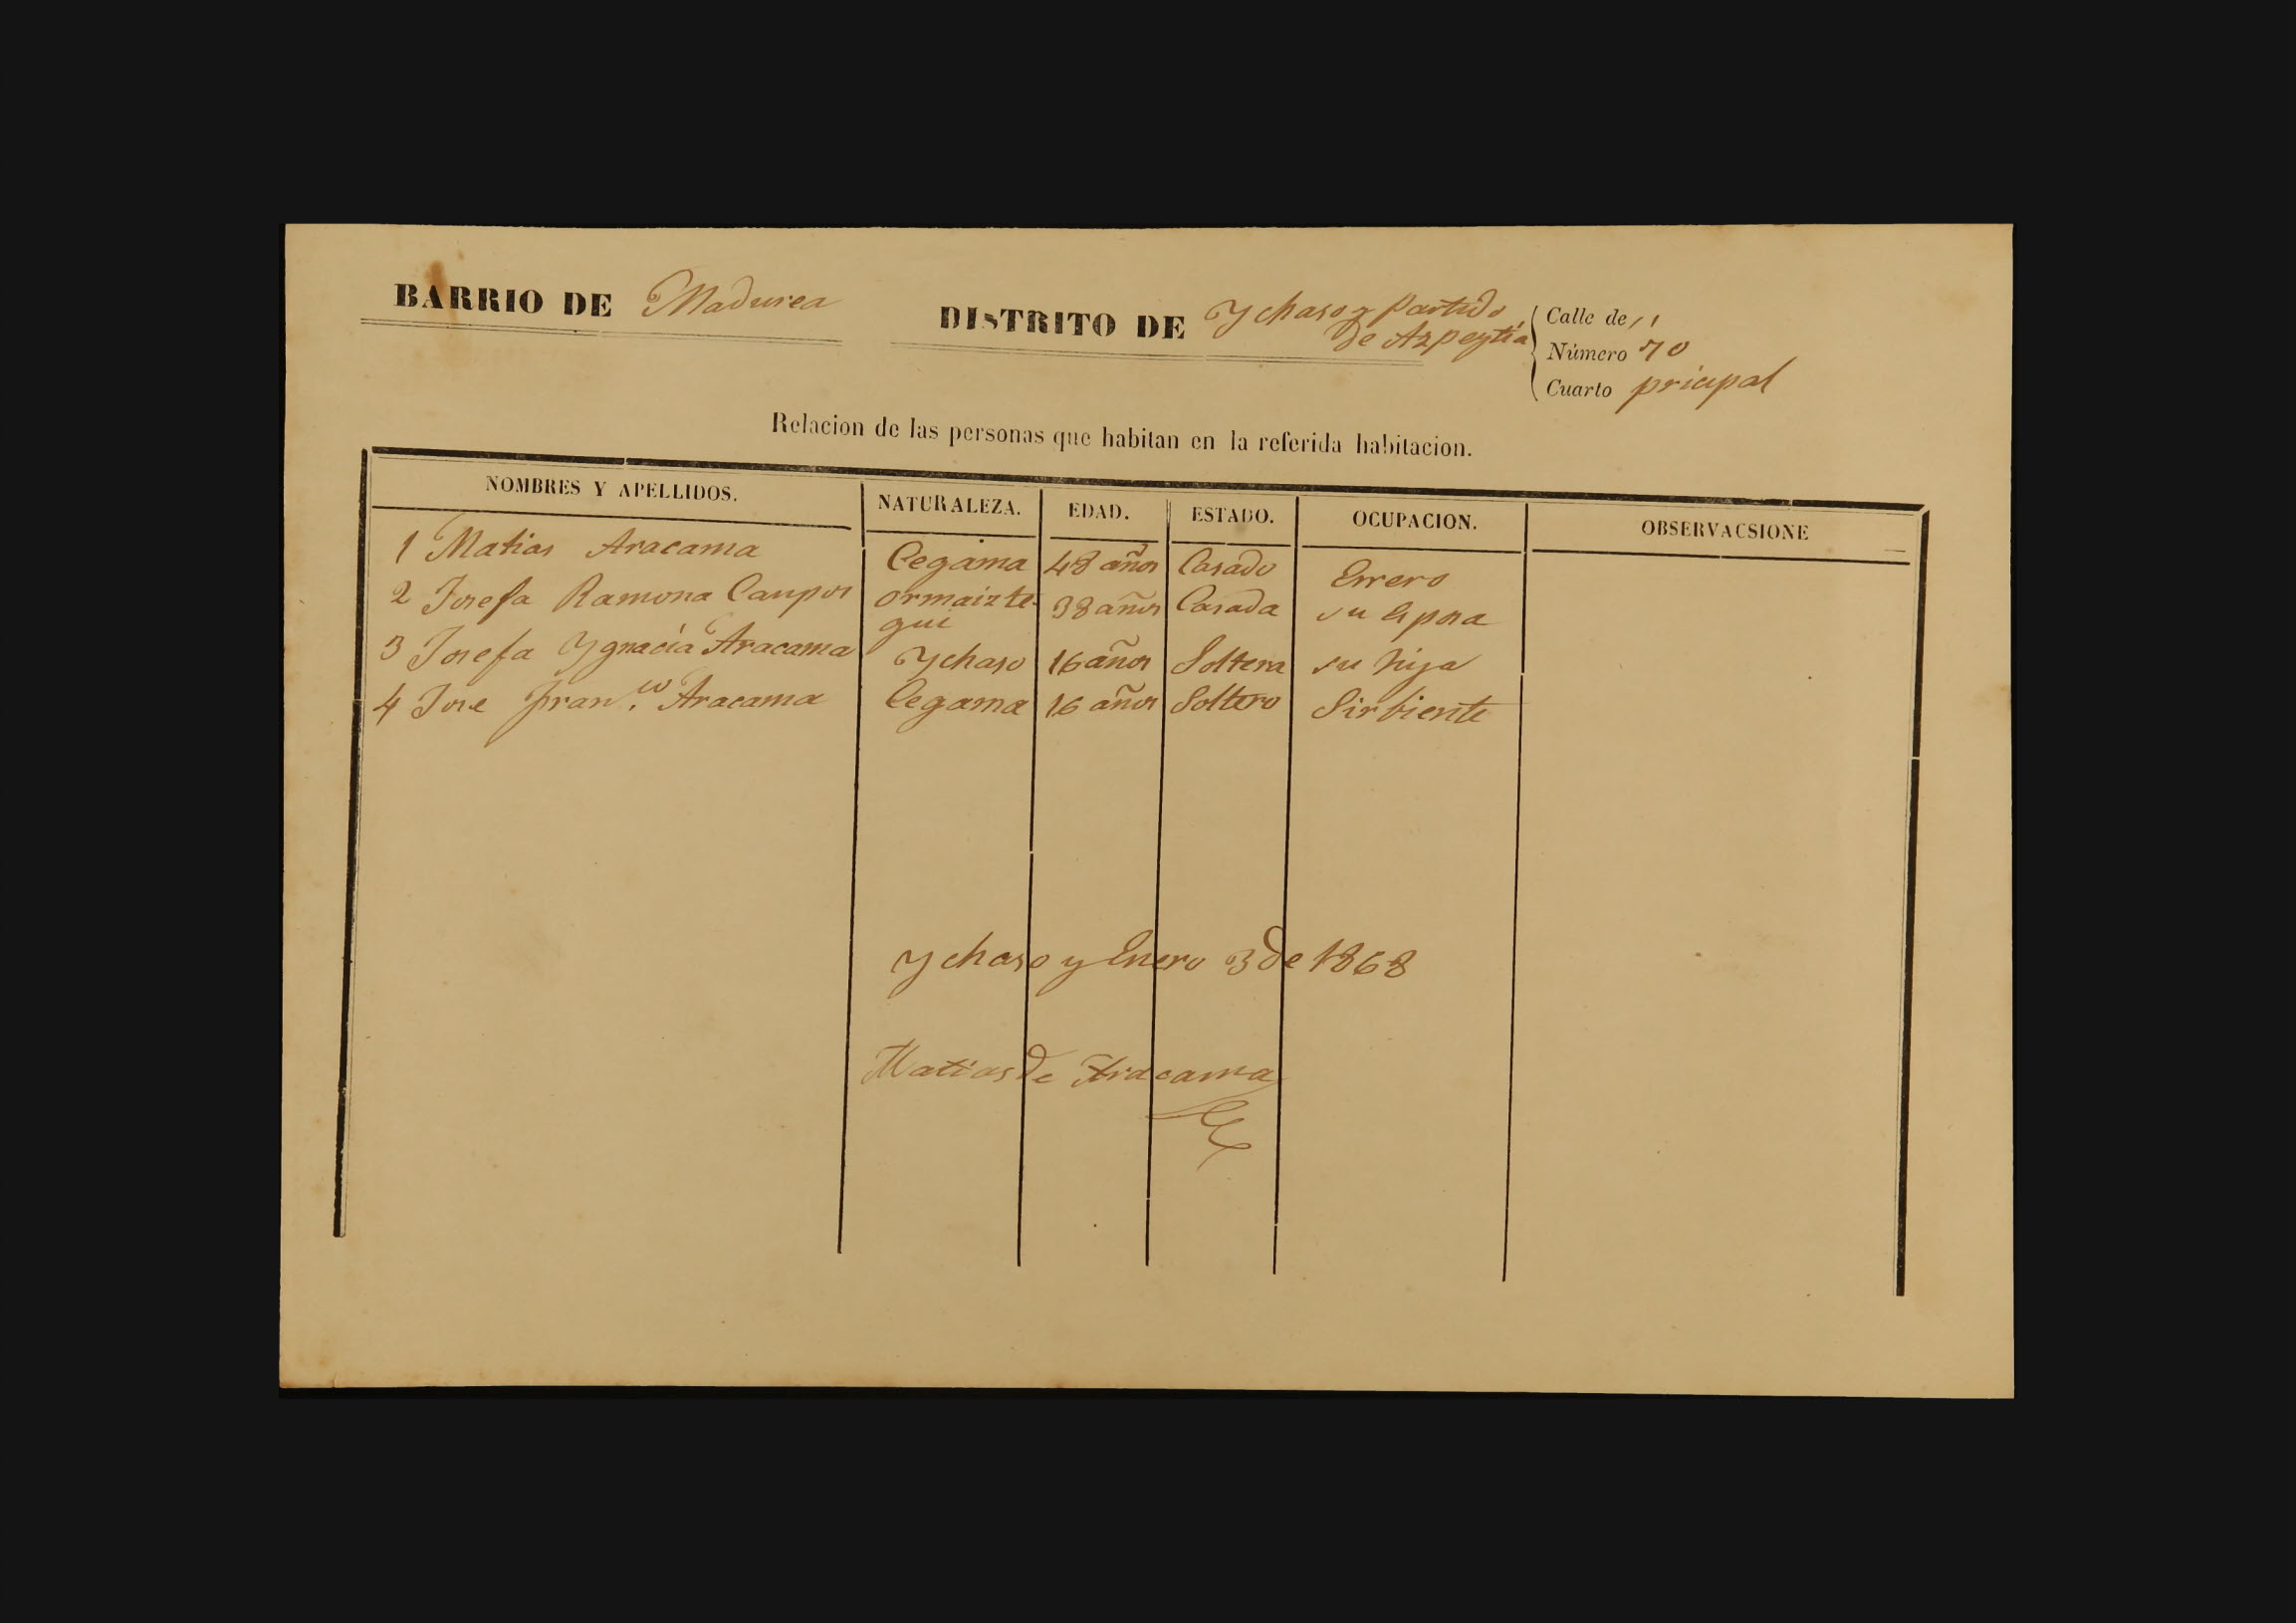 BARRIO DE Madurea
DISTRITO DE Ychaso y Partido
de Azpeytia
Calle de ,,
Número 70
Cuarto pricipal
Relacion de las personas que habitan en la referida habitacion.
NOMBRES Y APELLIDOS. NATURALEZA. EDAD. ESTADO. OCUPACION. OBSERVACSIONE
1 Matias Aracama Cegama 48 años Casado Errero
2 Josefa Ramona Campos Ormaizte- 38 años Casada su esposa
gui
3 Josefa Ygnacia Aracama Ychaso 16 años Soltera su hija
4 Jose Fran.co Aracama Cegama 16 años Soltero Sirbiente
Ychaso y Enero 3 de 1868
Matias de Aracama